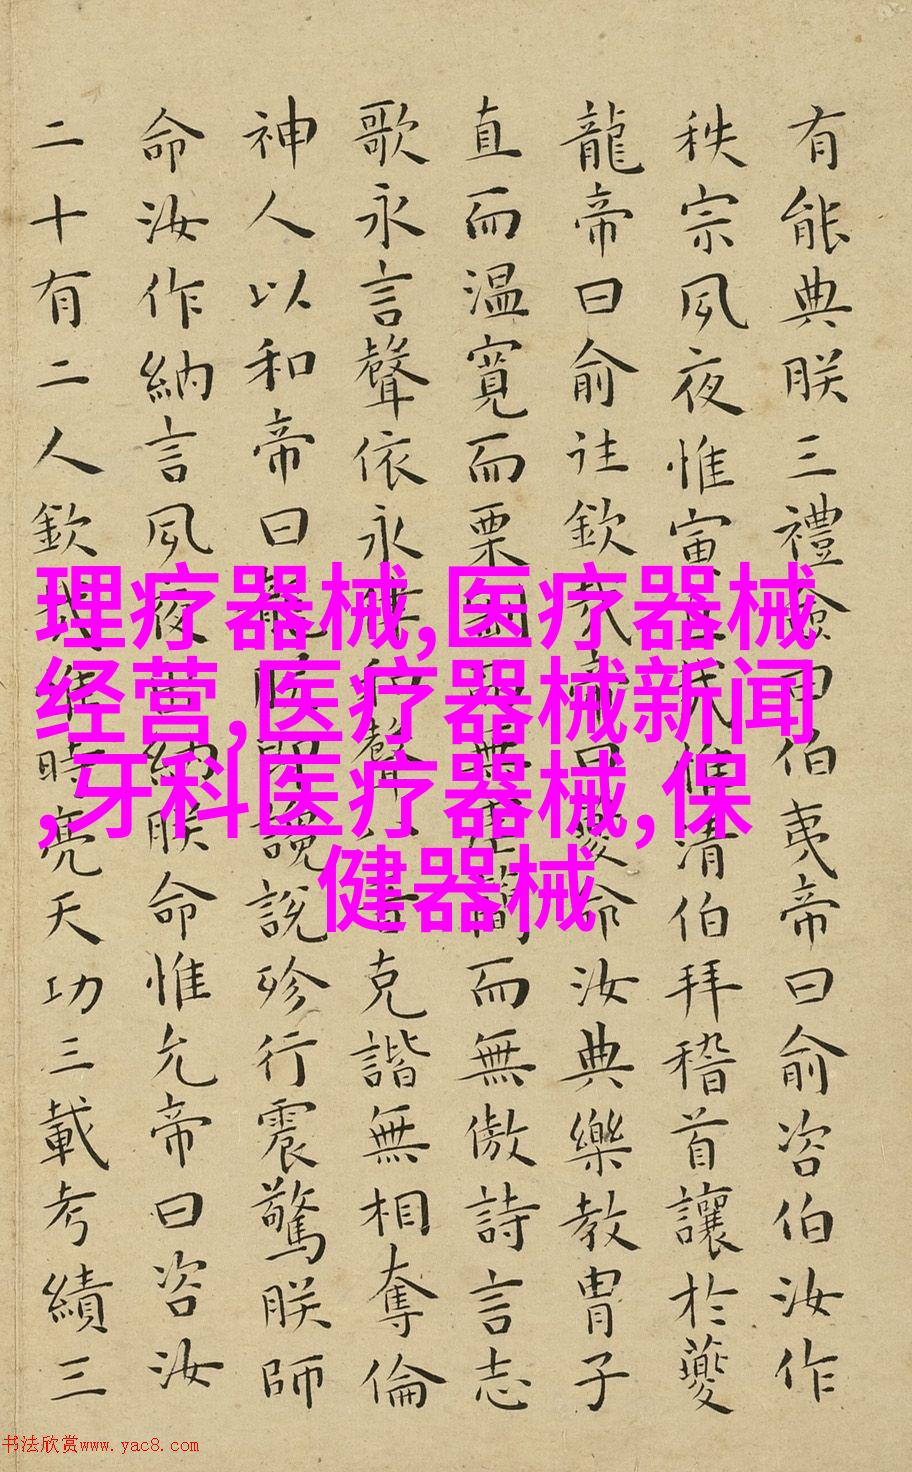 有能典朕三禮僉曰伯夷帝曰俞咨伯汝作
秩宗夙夜惟寅惟清伯拜稽首讓於夔
龍帝曰俞往欽哉帝曰夔命汝典樂教冑子
直而温寬而栗而無虐簡而無傲詩言志
歌永言聲依永律和聲音克諧無相奪倫
神人以和帝曰龍朕讒說殄行震驚朕師
命汝作納言夙夜出納朕命惟允帝曰咨汝
二十有二人欽哉惟時亮天功三載考績三
理疗器械,医疗器械
经营,医疗器械新闻
,牙科医疗器械,保
健器械
书法欣赏www.yac8.com